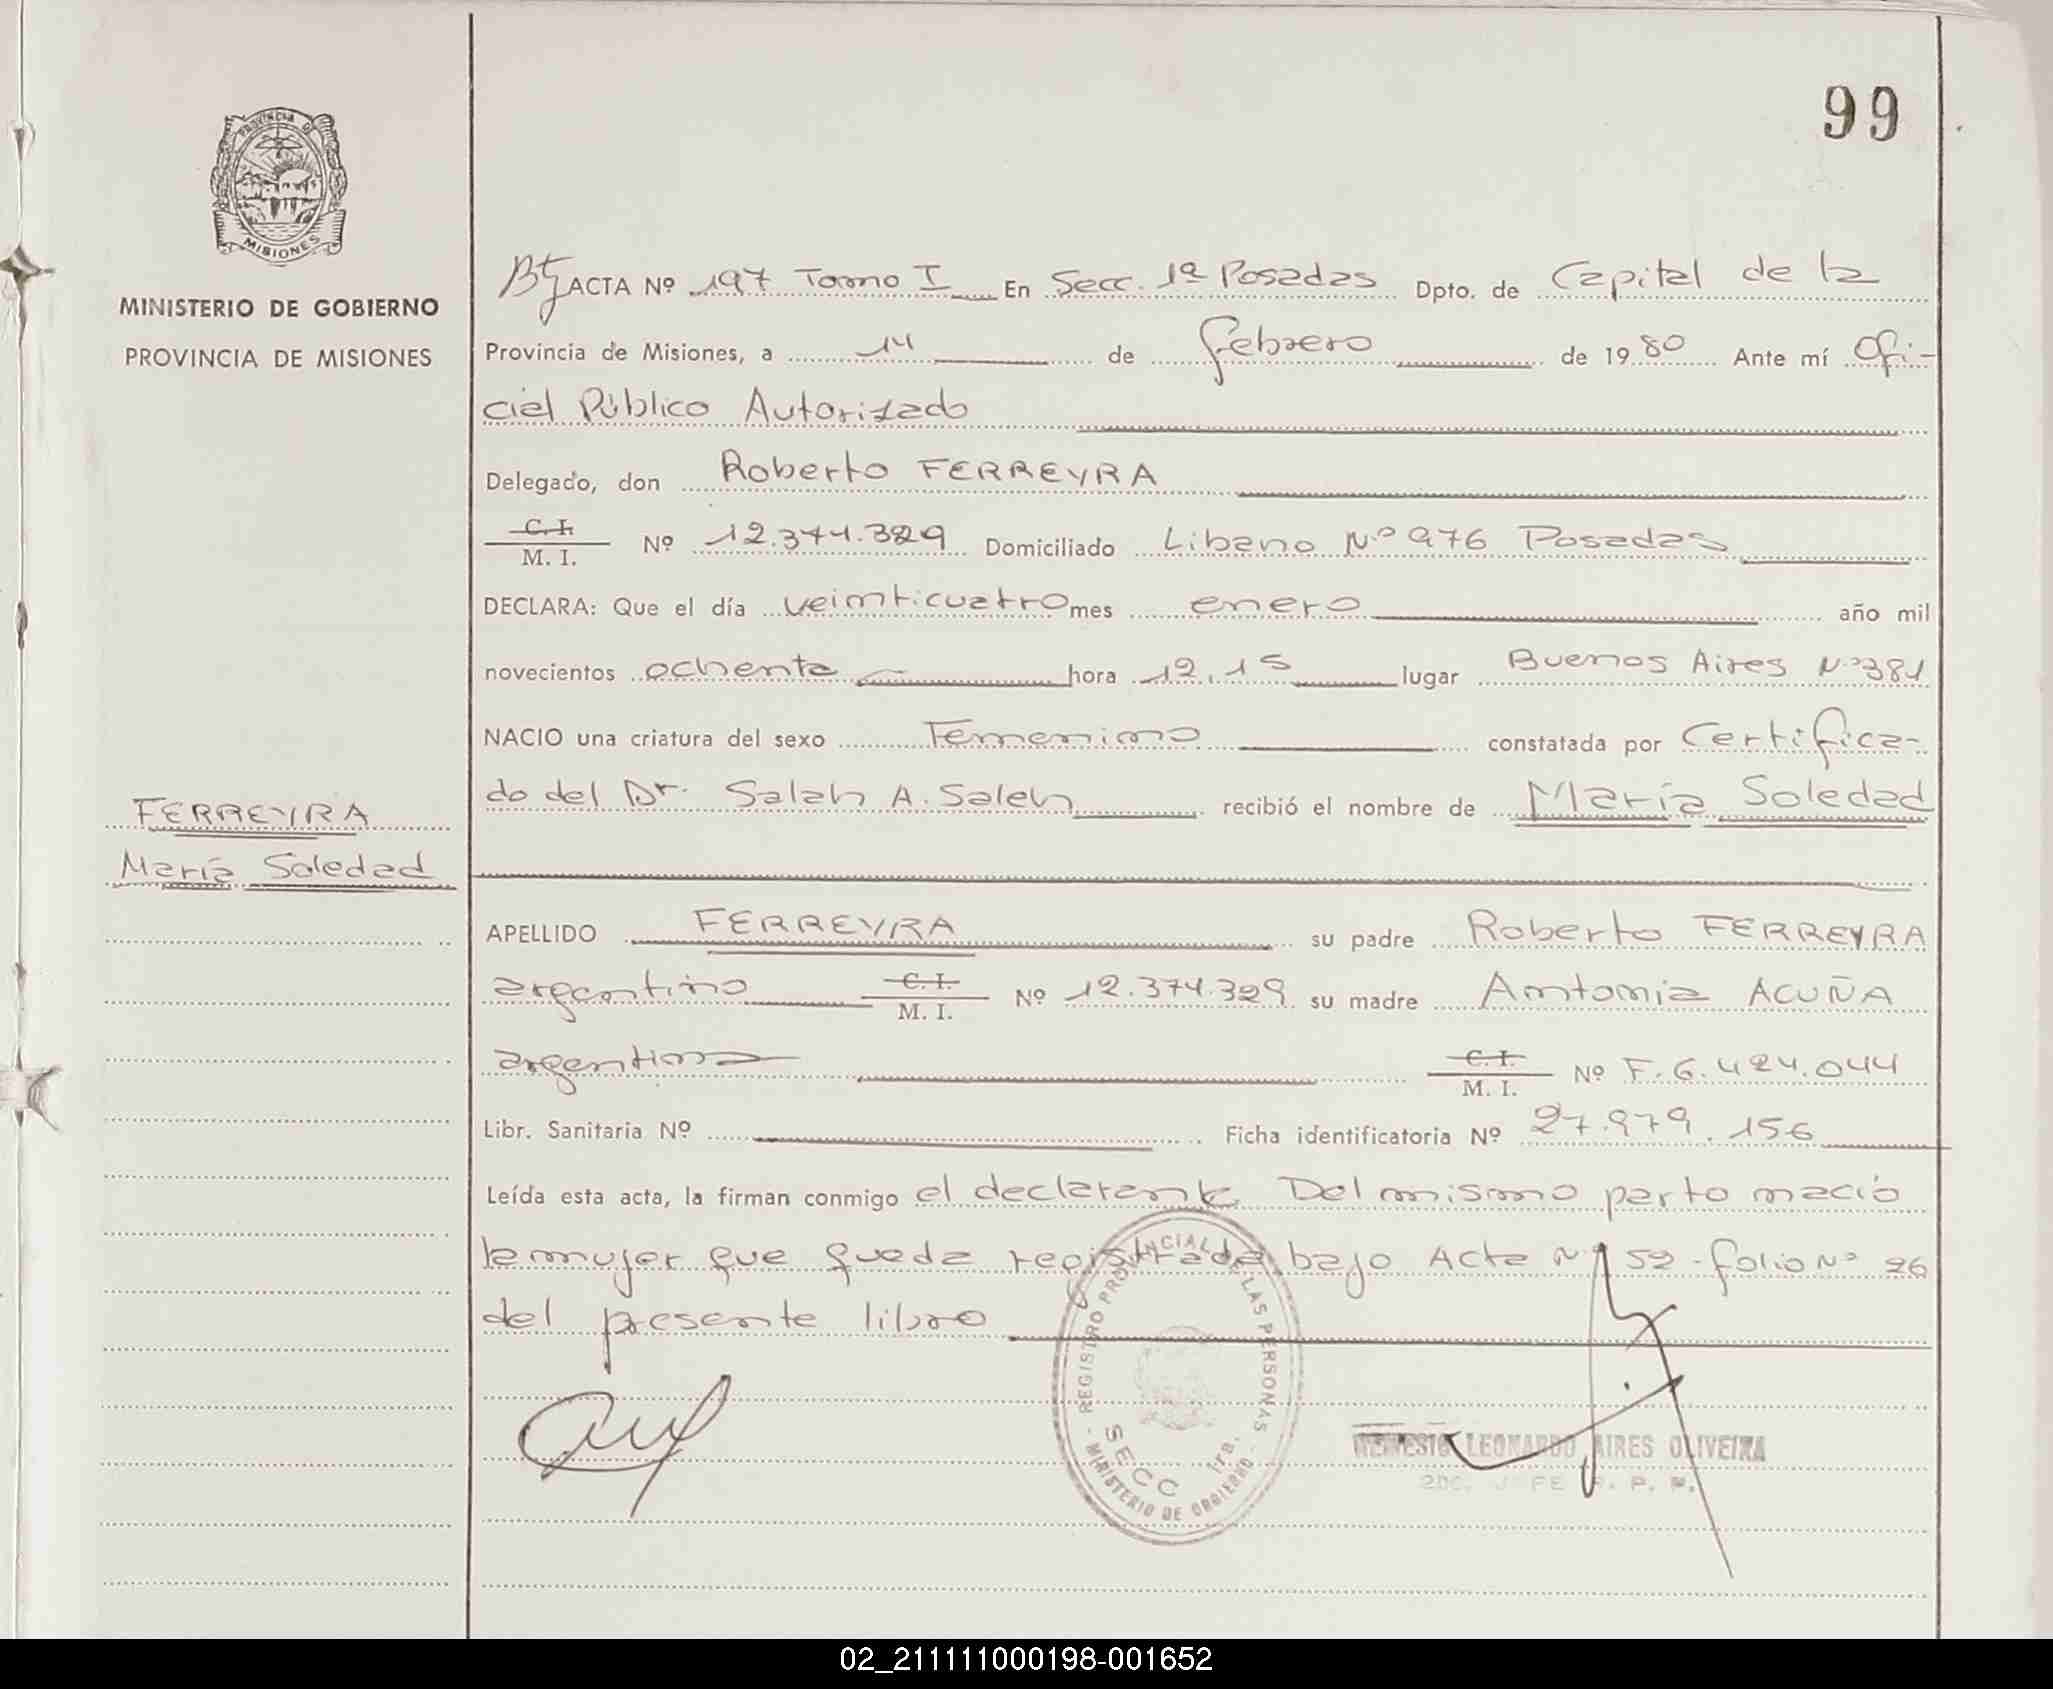 99
PROVINCIA DE
MISIONES
MINISTERIO DE GOBIERNO
PROVINCIA DE MISIONES
ACTA Nº 197 Tomo I En Secc. 1ª Posadas Dpto. de Capital de la
Provincia de Misiones, a 14 de febrero de 1980 Ante mí Ofi-
cial Público Autorizado
Delegado, don Roberto FERREYRA
C. I.
M. I. Nº 12.374.329 Domiciliado Libano Nº 976 Posadas
DECLARA: Que el día veinticuatro mes enero año mil
novecientos ochenta hora 12,15 lugar Buenos Aires Nº 381
NACIO una criatura del sexo Femenino constatada por Certifica-
do del Dr. Salah A. Saleh recibió el nombre de María Soledad
FERREYRA
María Soledad
APELLIDO FERREYRA su padre Roberto FERREYRA
argentino C. I.
M. I. Nº 12.374.329 su madre Antonia ACUÑA
argentina C. I.
M. I. Nº F. 6.424.044
Libr. Sanitaria Nº Ficha identificatoria Nº 27.979.156
Leída esta acta, la firman conmigo el declarante. Del mismo parto nació
la mujer que queda registrada bajo Acta Nº 52 - folio Nº 26
del presente libro
REGISTRO PROVINCIAL DE LAS PERSONAS
SECC 1ra.
MINISTERIO DE GOBIERNO
LEONARDO AIRES OLIVEIRA
02_211111000198-001652